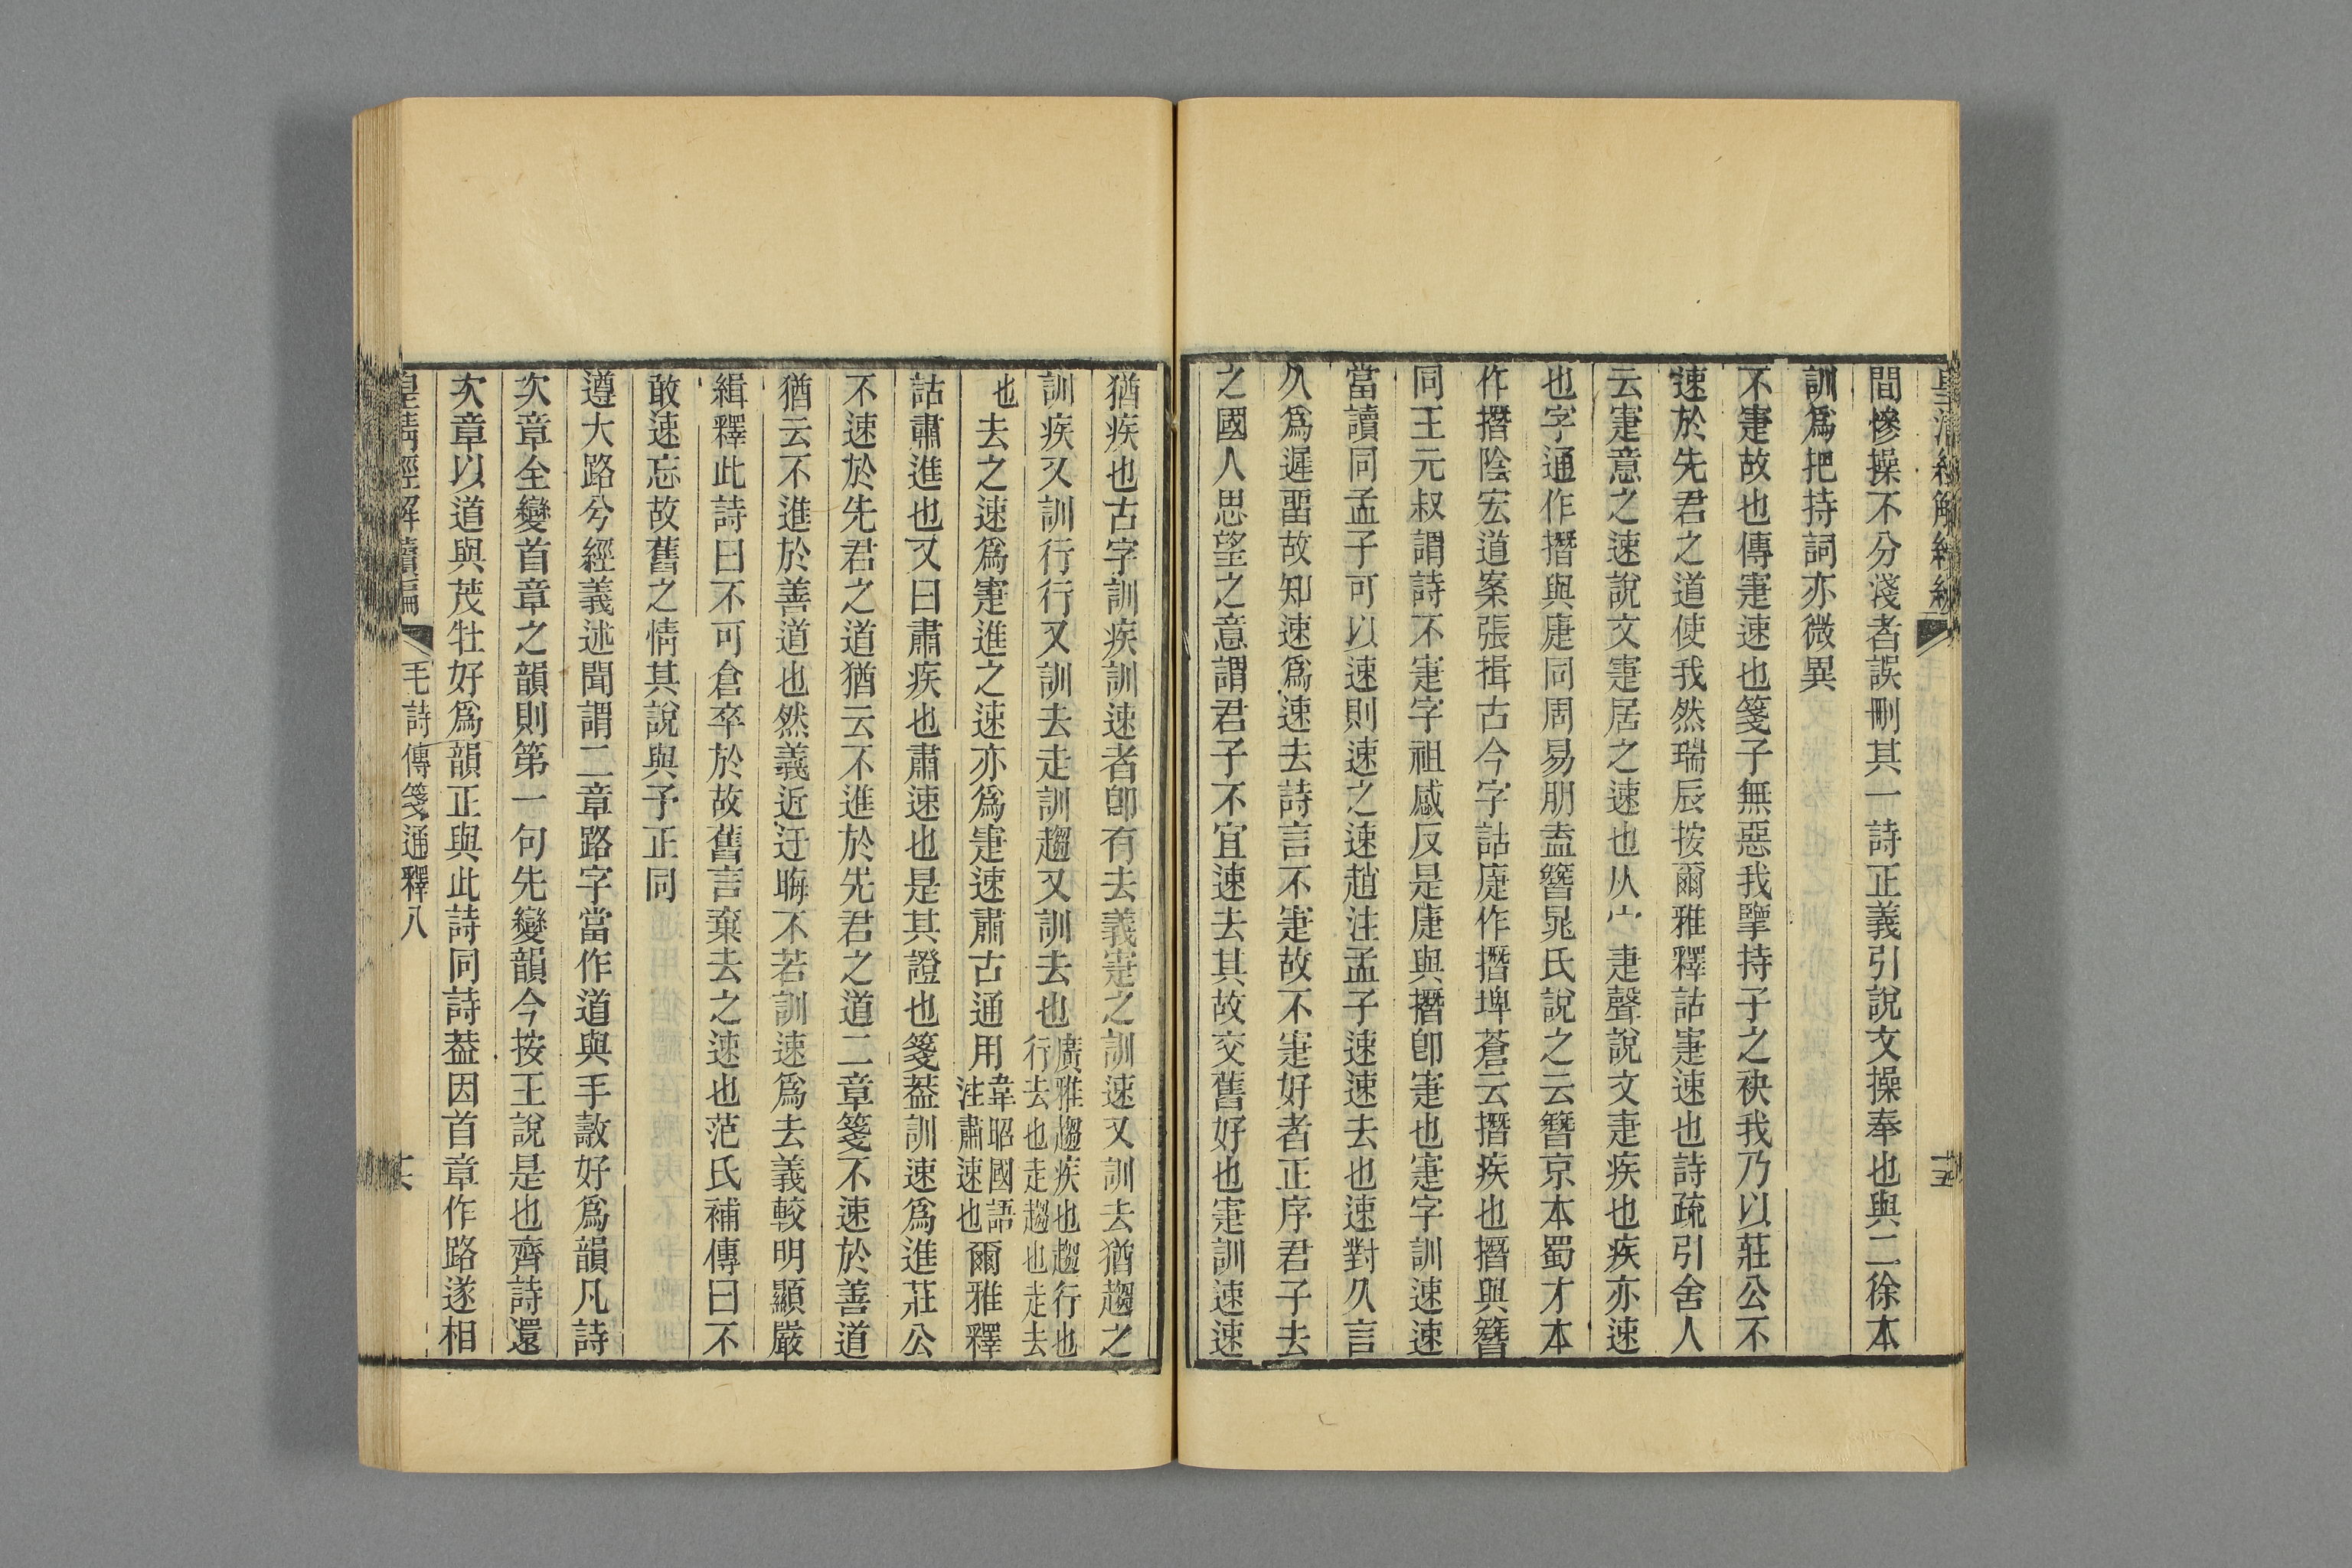 間慘操不分淺者誤刪其一詩正義引說文操奉也與二徐本
訓爲把持詞亦微異
不寁故也傳寁速也箋子無惡我擥持子之袂我乃以莊公不
速於先君之道使我然瑞辰按爾雅釋詁寁速也詩疏引舍人
云寁意之速說文寁居之速也从宀疌聲說文疌疾也疾亦速
也字通作撍與疌同周易朋盍簪晁氏說之云簪京本蜀才本
作撍陰宏道案張揖古今字詁疌作撍埤蒼云撍疾也撍與簪
同王元叔謂詩不寁字祖感反是疌與撍卽寁也寁字訓速速
當讀同孟子可以速則速之速趙注孟子速速去也速對久言
久爲遲畱故知速爲速去詩言不寁故不寁好者正序君子去
之國人思望之意謂君子不宜速去其故交舊好也寁訓速速
猶疾也古字訓疾訓速者卽有去義寁之訓速又訓去猶趨之
訓疾又訓行行又訓去走訓趨又訓去也廣雅趨疾也趨行也行去也走趨也走去
也去之速爲寁進之速亦爲寁速肅古通用韋昭國語注肅速也爾雅釋
詁肅進也又曰肅疾也肅速也是其證也箋葢訓速爲進莊公
不速於先君之道猶云不進於先君之道二章箋不速於善道
猶云不進於善道也然義近迂晦不若訓速爲去義較明顯嚴
緝釋此詩曰不可倉卒於故舊言棄去之速也范氏補傳曰不
敢速忘故舊之情其說與予正同
遵大路兮經義述聞謂二章路字當作道與手敽好爲韻凡詩
次章全變首章之韻則第一句先變韻今按王說是也齊詩還
次章以道與茂牡好爲韻正與此詩同詩葢因首章作路遂相
皇清經解續編 毛詩傳箋通釋八